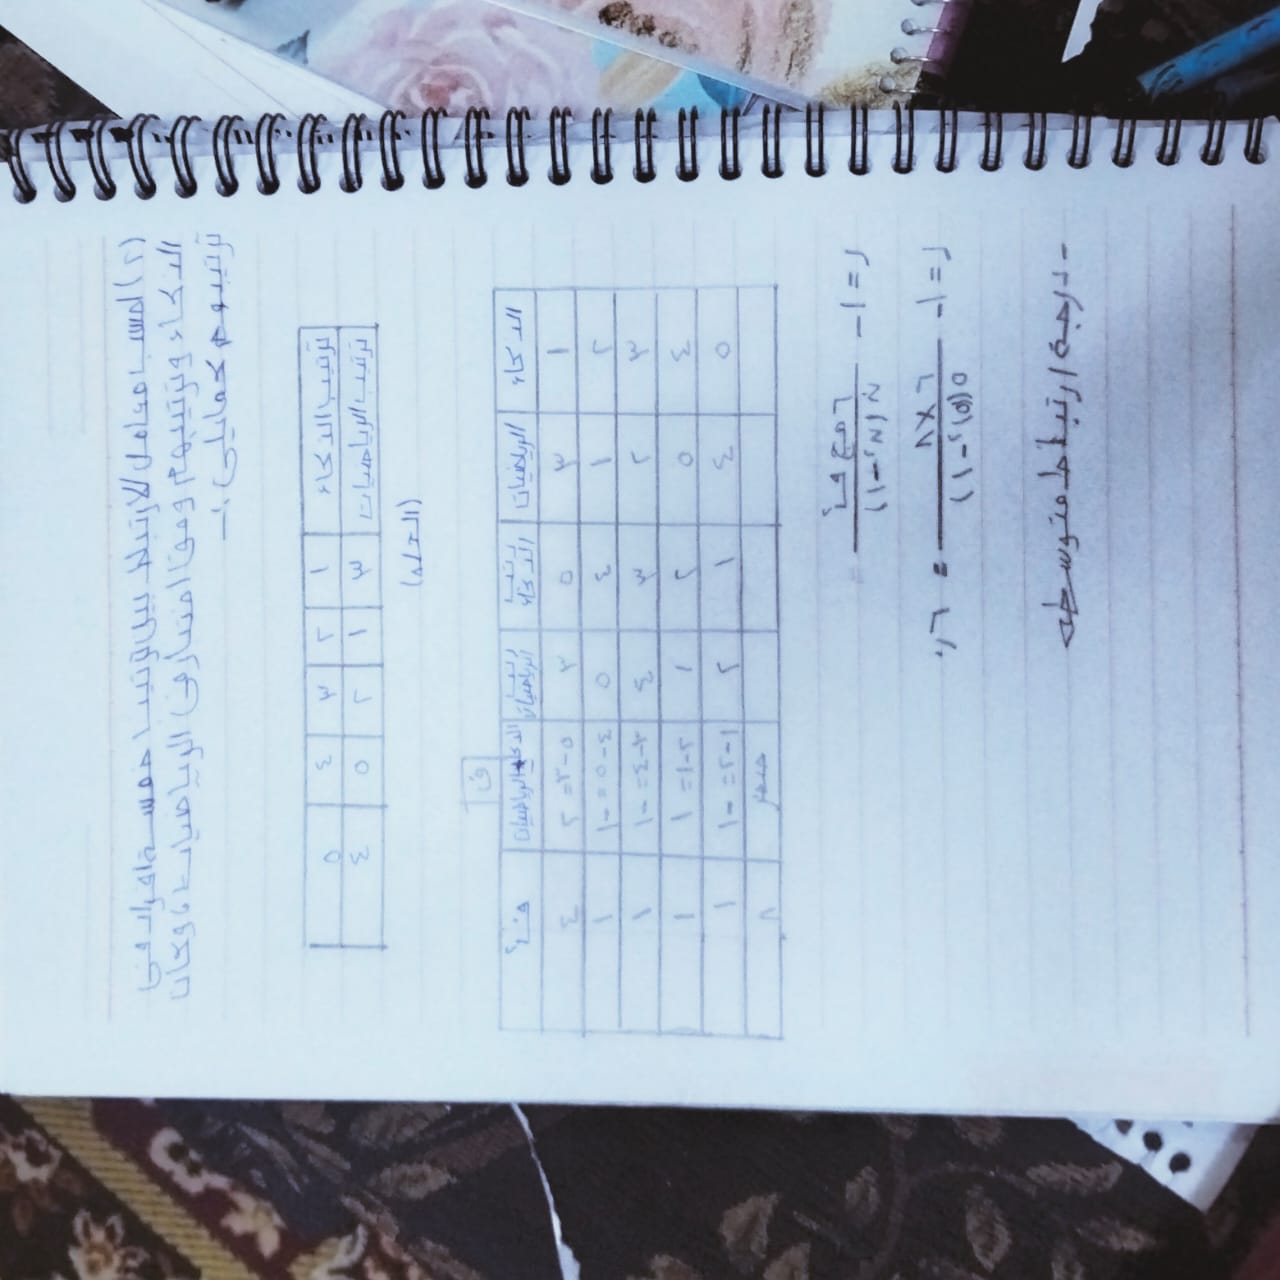 (٢) احسب معامل الارتباط بين ترتيب خمسة افراد في
الذكاء وترتيبهم وفق اختبار في الرياضيات ، وكان
ترتيبهم كما يلي :-
ترتيب الذكاء ١ ٢ ٣ ٤ ٥
ترتيب الرياضيات ٣ ١ ٢ ٥ ٤
(الحل)
ف
الذكاء الرياضيات رتب الذكاء رتب الرياضيات الذكاء الرياضيات ف٢
١ ٣ ٥ ٣ ٥-٣=٢ ٤
٢ ١ ٤ ٥ ٤-٥=-١ ١
٣ ٢ ٣ ٤ ٣-٤=-١ ١
٤ ٥ ٢ ١ ٢-١=١ ١
٥ ٤ ١ ٢ ١-٢=-١ ١
مجـ ٨
ر=١- ٦مجـ ف٢ / ن(ن٢-١) =
ر=١- ٦×٨ / ٥(٥)٢-١) = ٠,٦
- درجة ارتباط متوسطه